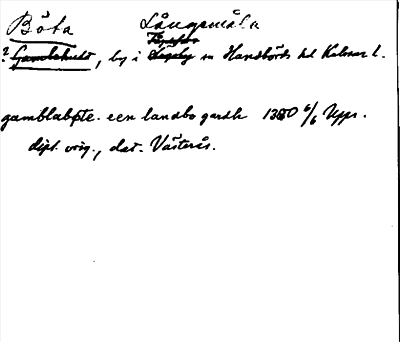 Böta Långemåla
? Gamlebult, by i sn Handbörds hd Kalmar l.
gamblabøte. een landbo gardh 1380 6/6 Upps.
dipl. orig., dat. Västerås.